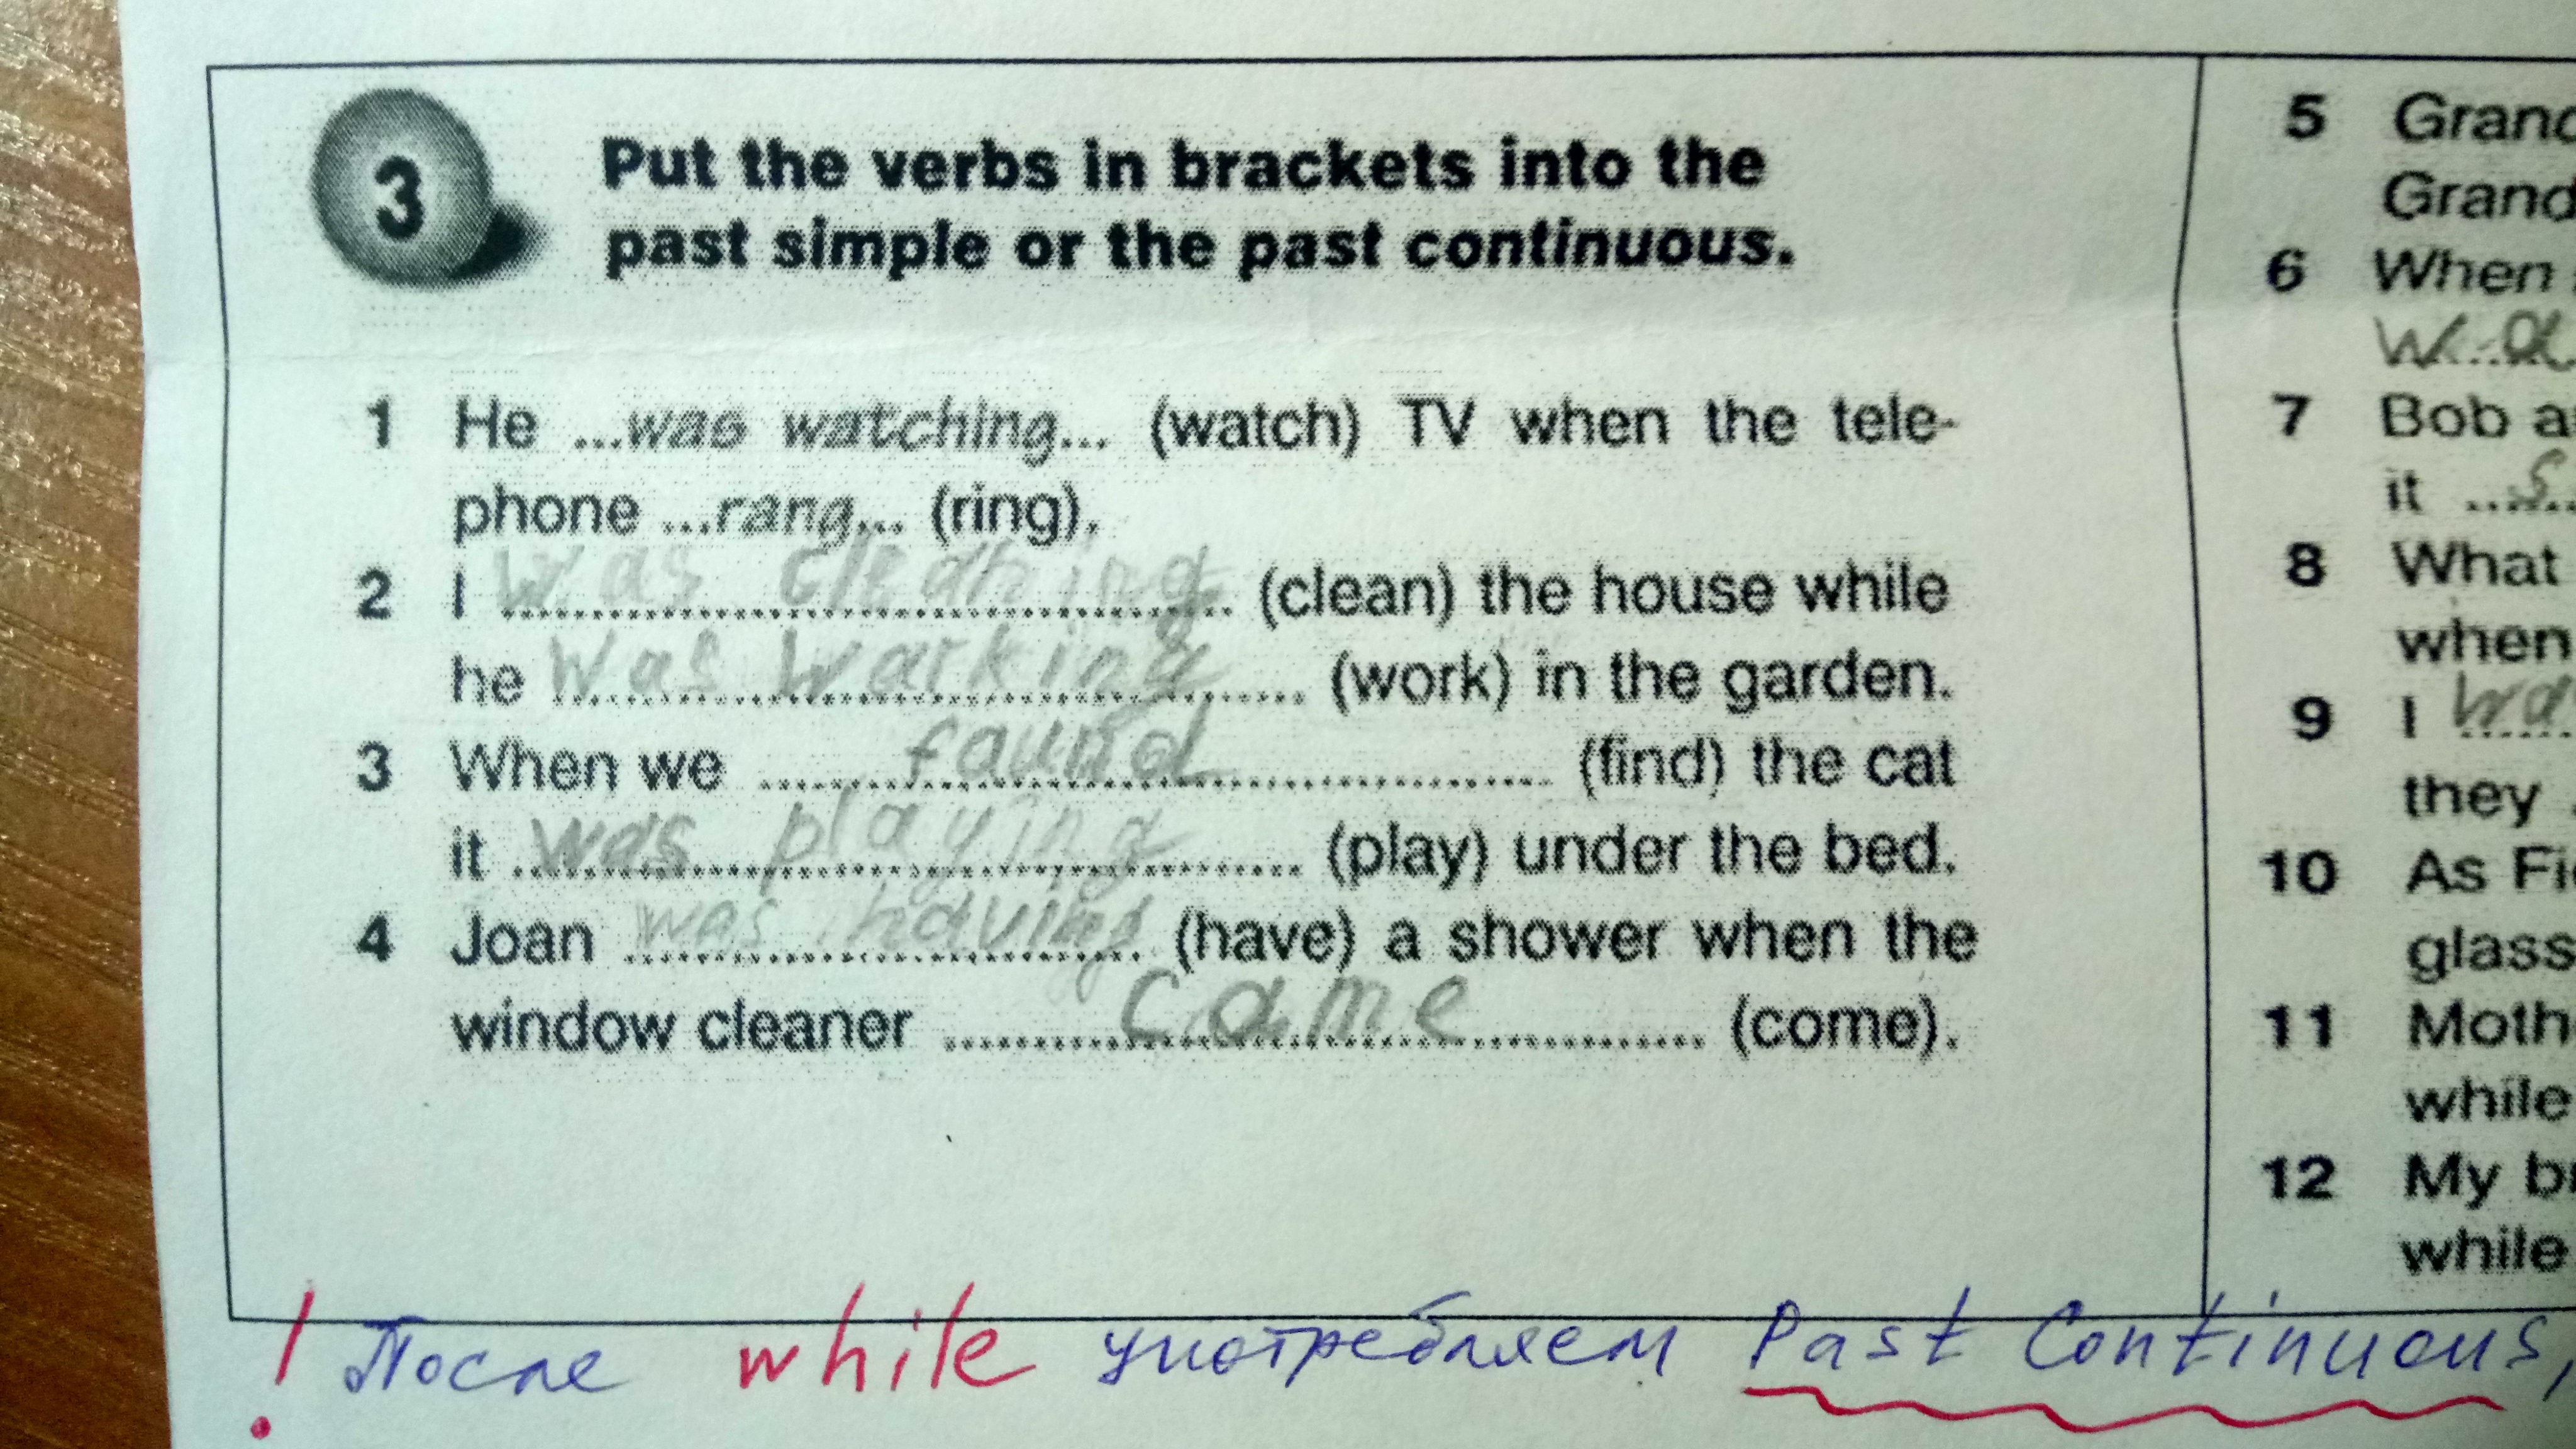 3
Put the verbs in brackets into the
past simple or the past continuous.
1 He ...was watching... (watch) TV when the tele-
phone ...rang... (ring).
2 I was cleaning (clean) the house while
he was warking (work) in the garden.
3 When we faund (find) the cat
it was playing (play) under the bed.
4 Joan was having (have) a shower when the
window cleaner came (come).
5 Grand
Grand
6 When
wa
7 Bob a
it ...s
8 What
when
9 I wa
they
10 As Fi
glass
11 Moth
while
12 My b
while
! После while употребляем Past Continuous,